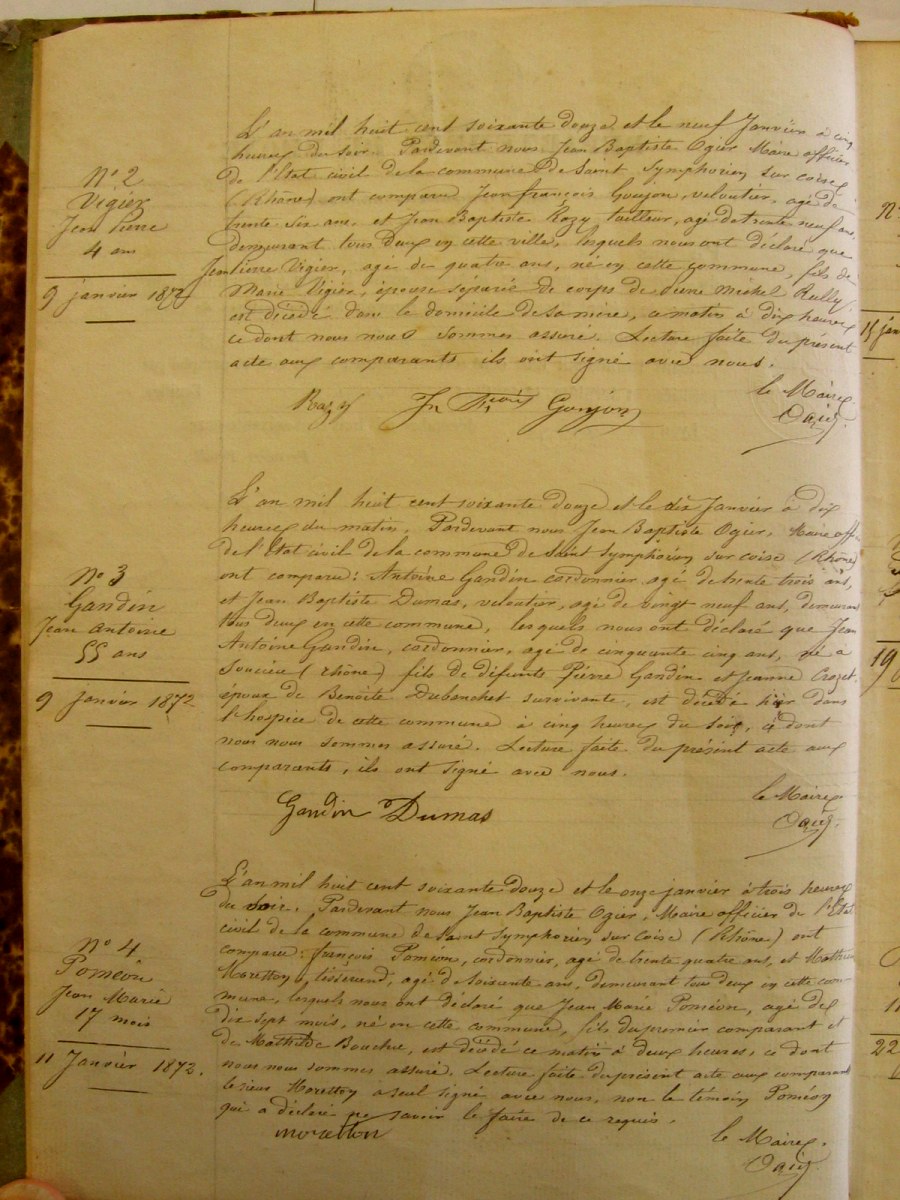 N° 2
Vigier
Jean Pierre
4 ans
9 janvier 1872
L'an mil huit cent soixante douze et le neuf Janvier à cinq
heures du soir. Pardevant nous Jean Baptiste Ogier Maire officier
de l'Etat civil de la commune de Saint Symphorien sur coise
(Rhône) ont comparu Jean françois Goujon, veloutier, agé de
trente six ans, et Jean Baptiste Razy tailleur, agé de trente neuf ans,
demeurant tous deux en cette ville, lesquels nous ont déclaré que
Jean Pierre Vigier, agé de quatre ans, né en cette commune, fils de
Marie Vigier, épouse séparée de corps de Pierre Michel Rully
est décédé dans le domicile de sa mère, ce matin à dix heures
ce dont nous nous sommes assuré. Lecture faite du présent
acte aux comparants ils ont signé avec nous.
Razy Jn Fçois Goujon
le Maire
Ogier
N° 3
Gandin
Jean Antoine
55 ans
9 Janvier 1872
L'an mil huit cent soixante douze et le dix Janvier à dix
heures du matin. Pardevant nous Jean Baptiste Ogier, Maire offi
de l'Etat civil de la commune de Saint Symphorien sur coise (Rhône)
ont comparu: Antoine Gandin cordonnier agé de trente trois ans,
et Jean Baptiste Dumas, veloutier, agé de vingt neuf ans, demeurant
tous deux en cette commune, lesquels nous ont déclaré que Jean
Antoine Gandin, cordonnier, agé de cinquante cinq ans, né a
Soucieu (rhône) fils de défunts Pierre Gandin et Jeanne Crozet,
époux de Benoîte Dubanchet survivante, est décédé hier dans
l'hospice de cette commune à cinq heures du soir, ce dont
nous nous sommes assuré. Lecture faite du présent acte aux
comparants, ils ont signé avec nous.
Gandin Dumas
le Maire
Ogier
N° 4
Poméon
Jean Marie
17 mois
11 Janvier 1872.
L'an mil huit cent soixante douze et le onze janvier à trois heures
du soir. Pardevant nous Jean Baptiste Ogier, Maire officier de l'Etat
civil de la commune de Saint Symphorien sur coise (Rhône) ont
comparu: françois Poméon, cordonnier, agé de trente quatre ans, et
Moretton, tisserand, agé de soixante ans, demeurant tous deux en cette com-
mune, lesquels nous ont déclaré que Jean Marie Poméon, agé de
dix sept mois, né en cette commune, fils du premier comparant et
de Mathilde Bouchre, est décédé ce matin à deux heures, ce dont
nous nous sommes assuré. Lecture faite du présent acte aux comparants
le sieur Moretton a seul signé avec nous, non le témoin Poméon
qui a déclaré ne savoir le faire de ce requis.
moretton
le Maire.
Ogier
N°
15 jan
19
1
22